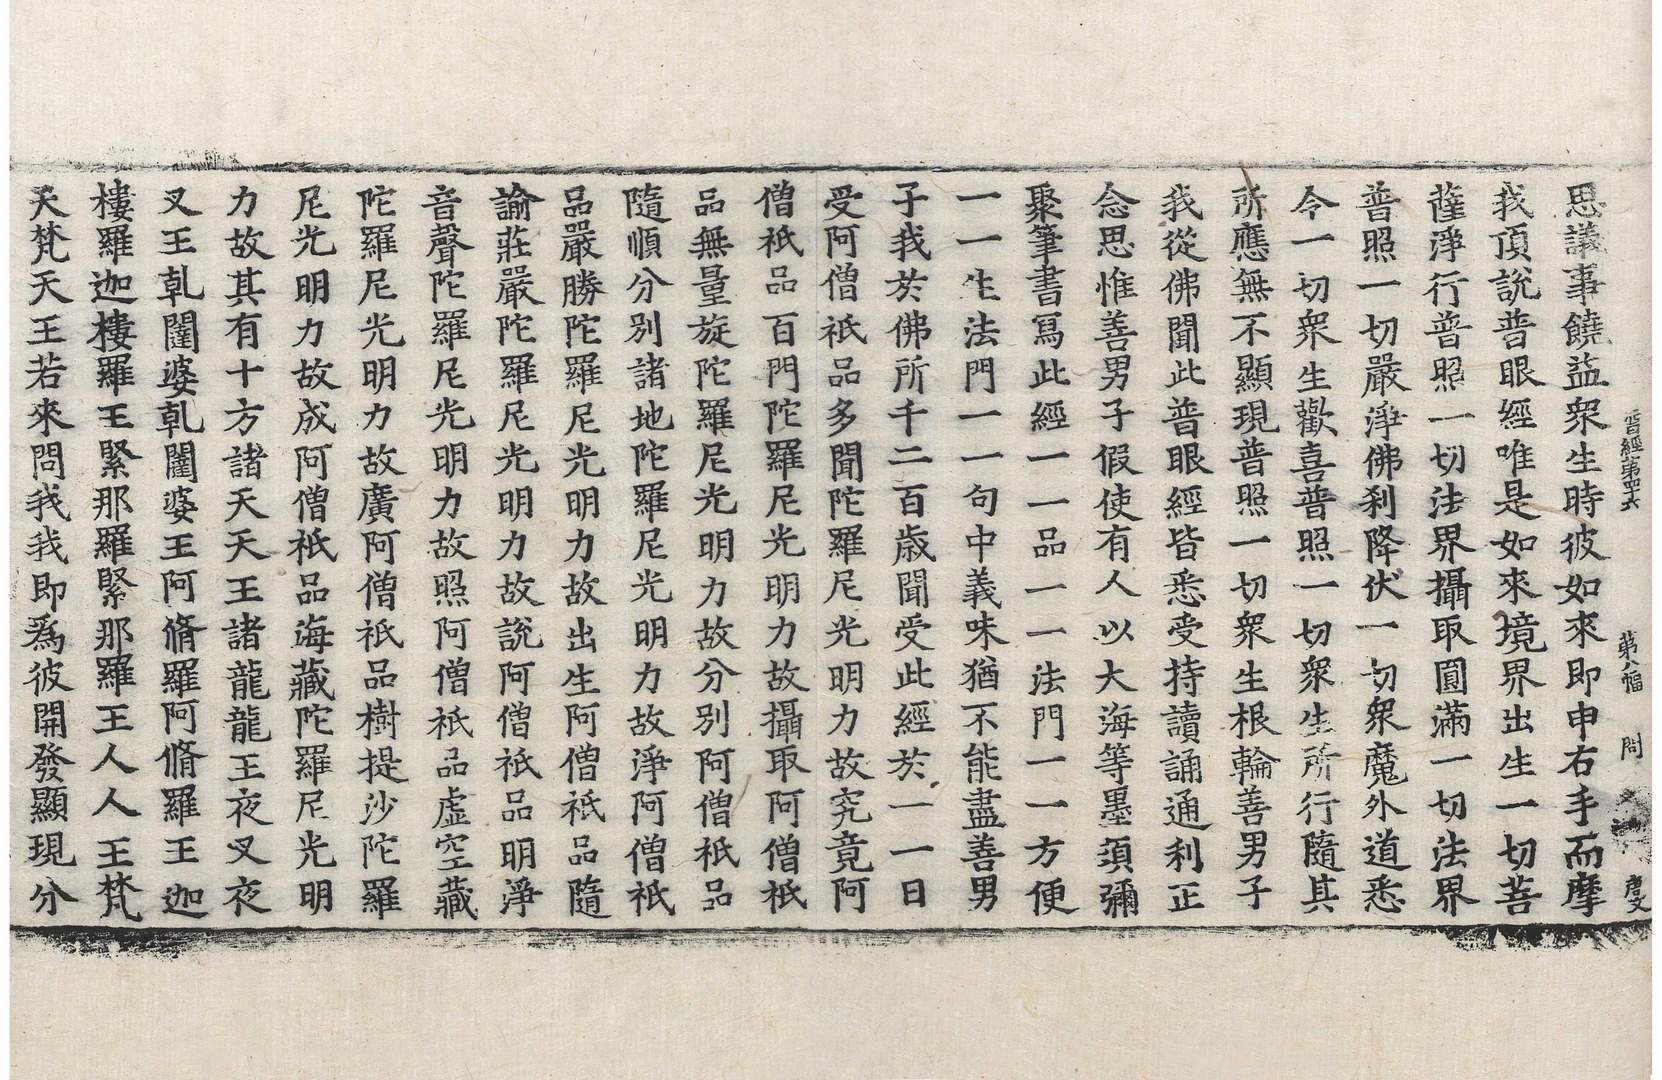 晋經第四六 第八幅 問 彥文
思議事饒益衆生時彼如來即申右手而摩
我頂說普眼經唯是如來境界出生一切菩
薩淨行普照一切法界攝取圓滿一切法界
普照一切嚴淨佛刹降伏一切衆魔外道悉
令一切衆生歡喜普照一切衆生所行隨其
所應無不顯現普照一切衆生根輪善男子
我從佛聞此普眼經皆悉受持讀誦通利正
念思惟善男子假使有人以大海等墨須彌
聚筆書寫此經一一品一一法門一一方便
一一生法門一一句中義味猶不能盡善男
子我於佛所千二百歲聞受此經於一一日
受阿僧祇品多聞陀羅尼光明力故究竟阿
僧祇品百門陀羅尼光明力故攝取阿僧祇
品無量旋陀羅尼光明力故分別阿僧祇品
隨順分別諸地陀羅尼光明力故淨阿僧祇
品嚴勝陀羅尼光明力故出生阿僧祇品隨
諭莊嚴陀羅尼光明力故說阿僧祇品明淨
音聲陀羅尼光明力故照阿僧祇品虛空藏
陀羅尼光明力故廣阿僧祇品樹提沙陀羅
尼光明力故成阿僧祇品海藏陀羅尼光明
力故其有十方諸天天王諸龍龍王夜叉夜
叉王乹闥婆乹闥婆王阿脩羅阿脩羅王迦
樓羅迦樓羅王緊那羅緊那羅王人人王梵
天梵天王若來問我我即爲彼開發顯現分